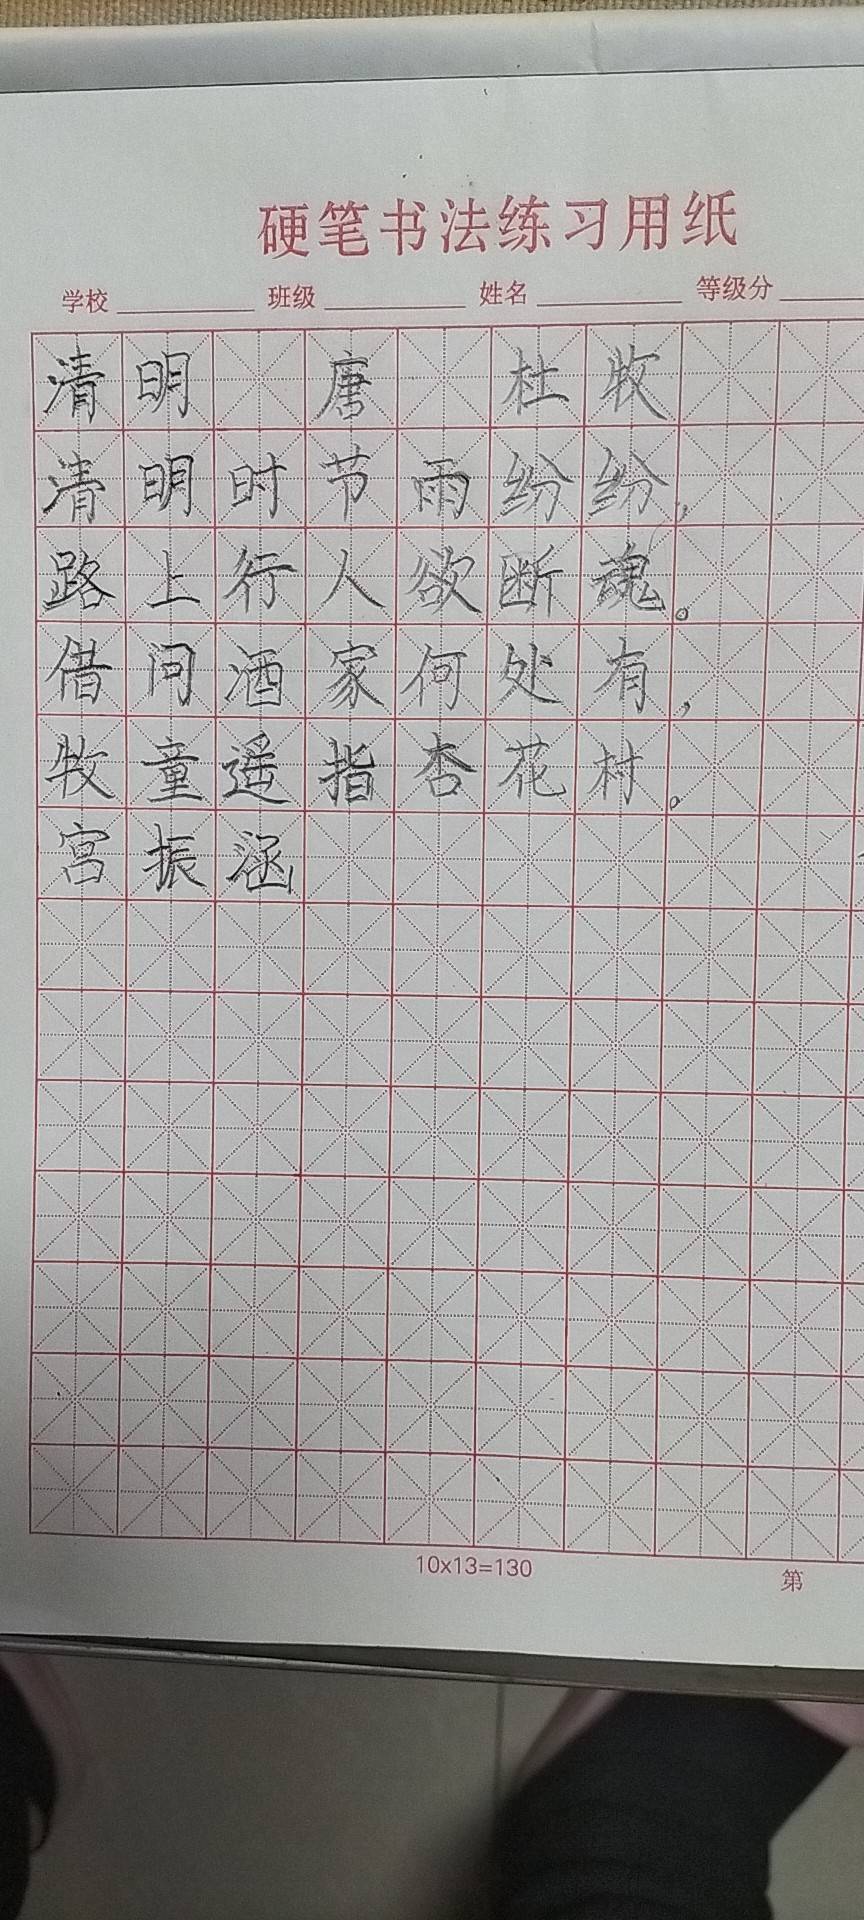 硬笔书法练习用纸
学校 班级 姓名 等级分
清明 唐 杜牧
清明时节雨纷纷，
路上行人欲断魂。
借问酒家何处有，
牧童遥指杏花村。
宫振涵
10x13=130
第